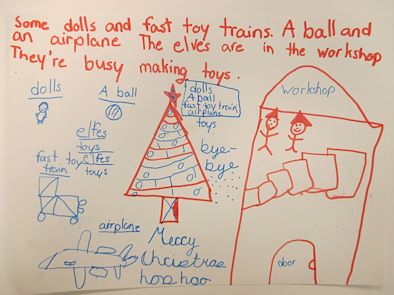 Some dolls and fast toy trains. A ball and
an airplane The elves are in the workshop
They're busy making toys.
dolls
A ball
elfes
toys
elfes
toys
fast toy
train
airplane
dolls
A ball
fast toy train
airplane
toys
bye-
bye
Merry
Christras
hoo hoo
workshop
door